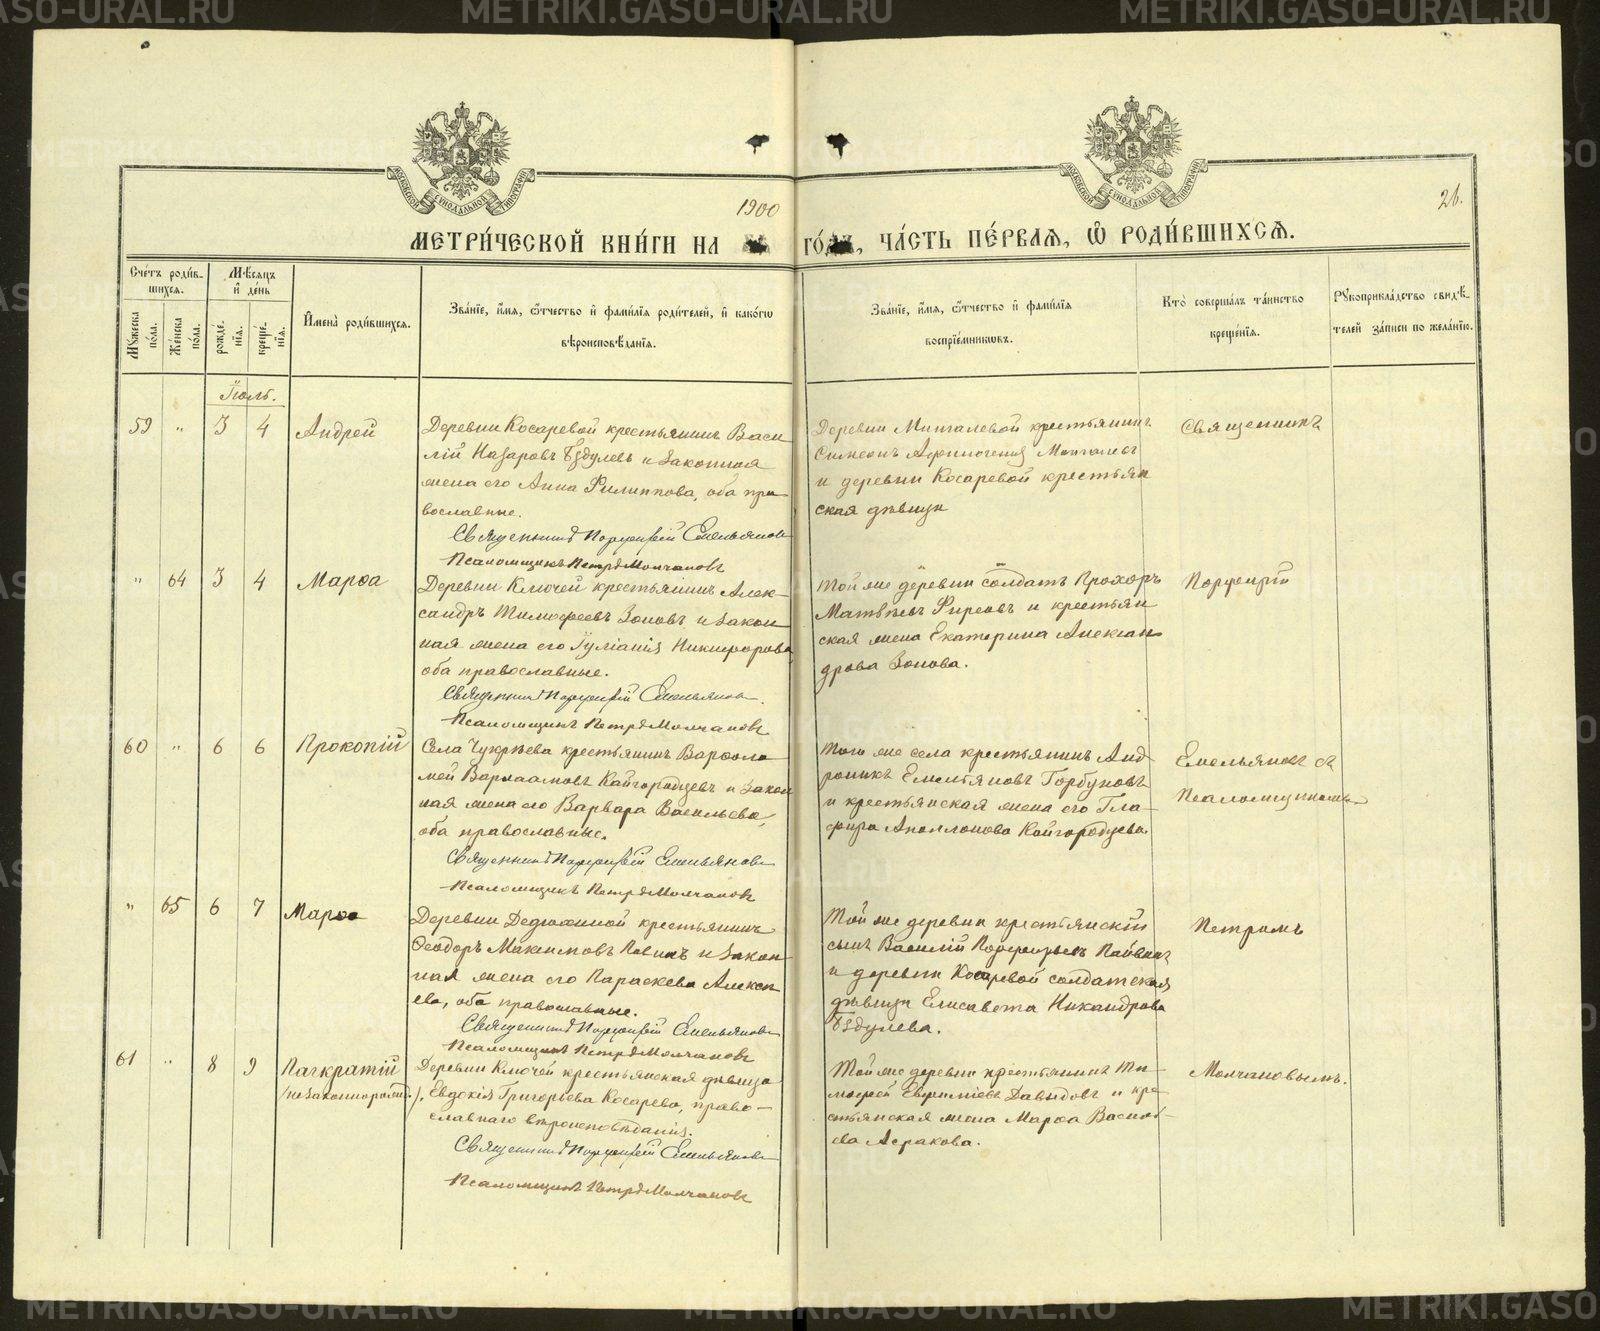 METRIKI.GASO-URAL.RU
МОСКОВСКОЙ СѴНОДАЛЬНОЙ ТИПОГРАФІИ
МОСКОВСКОЙ СѴНОДАЛЬНОЙ ТИПОГРАФІИ
1900
26.
МЕТРИ́ЧЕСКОЙ КНИ́ГИ НА ГО́ДЪ, ЧА́СТЬ ПЕ́РВАЯ, Ѡ҆ РОДИ́ВШИХСЯ.
Сче́тъ роди́в-
шихся.
Мѣ́сяцъ
и҆ де́нь
Мꙋ́жеска по́ла.
Же́нска по́ла.
рожде́-нїя.
креще́-нїя.
И҆мена̀ роди́вшихся.
Зва́нїе, и҆́мя, ѻ҆́тчество и҆ фами́лїя роди́телей, и҆ како́гѡ
вѣроисповѣ́данїя.
Зва́нїе, и҆́мя, ѻ҆́тчество и҆ фами́лїя
воспрїе́мникѡвъ.
Кто̀ соверша́лъ та́инство
креще́нїя.
Рꙋкоприкла́дство свидѣ́-
телей за́писи по жела́нїю.
Іюль.
59 " 3 4 Андрей
Деревни Косаревой крестьянинъ Васи
лій Назаровъ Бздулевъ и законная
жена его Анна Филиппова, оба пра
вославные.
Священникъ Порфирій Емельяновъ
Псаломщикъ Петръ Молчановъ
Деревни крестьянинъ
Симеонъ
и деревни Косаревой крестьян
ская дѣвица
Священникъ
" 64 3 4 Марѳа
Деревни Ключей крестьянинъ Алек-
сандръ Тимофеевъ Зоновъ и закон
ная жена его Іуліанія Никифорова,
оба православные.
Священникъ Порфирій Емельяновъ.
Псаломщикъ Петръ Молчановъ
Той же деревни солдатъ Прохоръ
Матвѣевъ Фирсовъ и крестьян
ская жена Екатерина Алексан
дрова Зонова.
Порфирій
60 " 6 6 Прокопій
Села Чукрѣева крестьянинъ Варѳоло
мей Варлаамовъ Кайгородцевъ и закон
ная жена его Варвара Васильева,
оба православные.
Священникъ Порфирій Емельяновъ
Псаломщикъ Петръ Молчановъ
Того же села крестьянинъ Анд
роникъ Емельяновъ Горбуновъ
и крестьянская жена его Гла-
фира Аполлонова Кайгородцева.
Емельяновъ съ
Псаломщикомъ
" 65 6 7 Марѳа
Деревни Дедюхиной крестьянинъ
Ѳеодоръ Максимовъ и закон-
ная жена его Параскева Алексѣ
ева, оба православные.
Священникъ Порфирій Емельяновъ
Псаломщикъ Петръ Молчановъ
Той же деревни крестьянскій
сынъ Василій Порфирьевъ
и деревни Косаревой солдатская
дѣвица Елисавета Никандрова
Бздулева.
Петромъ
61 " 8 9 Панкратій
/незаконнорожд./
Деревни Ключей крестьянская дѣвица
Евдокія Григорьева Косарева, право-
славнаго вѣроисповѣданія.
Священникъ Порфирій Емельяновъ
Псаломщикъ Петръ Молчановъ
Той же деревни крестьянинъ Ти
мофей Евфиміевъ Давыдовъ и кре
стьянская жена Марѳа Василь-
ева Асракова.
Молчановымъ.